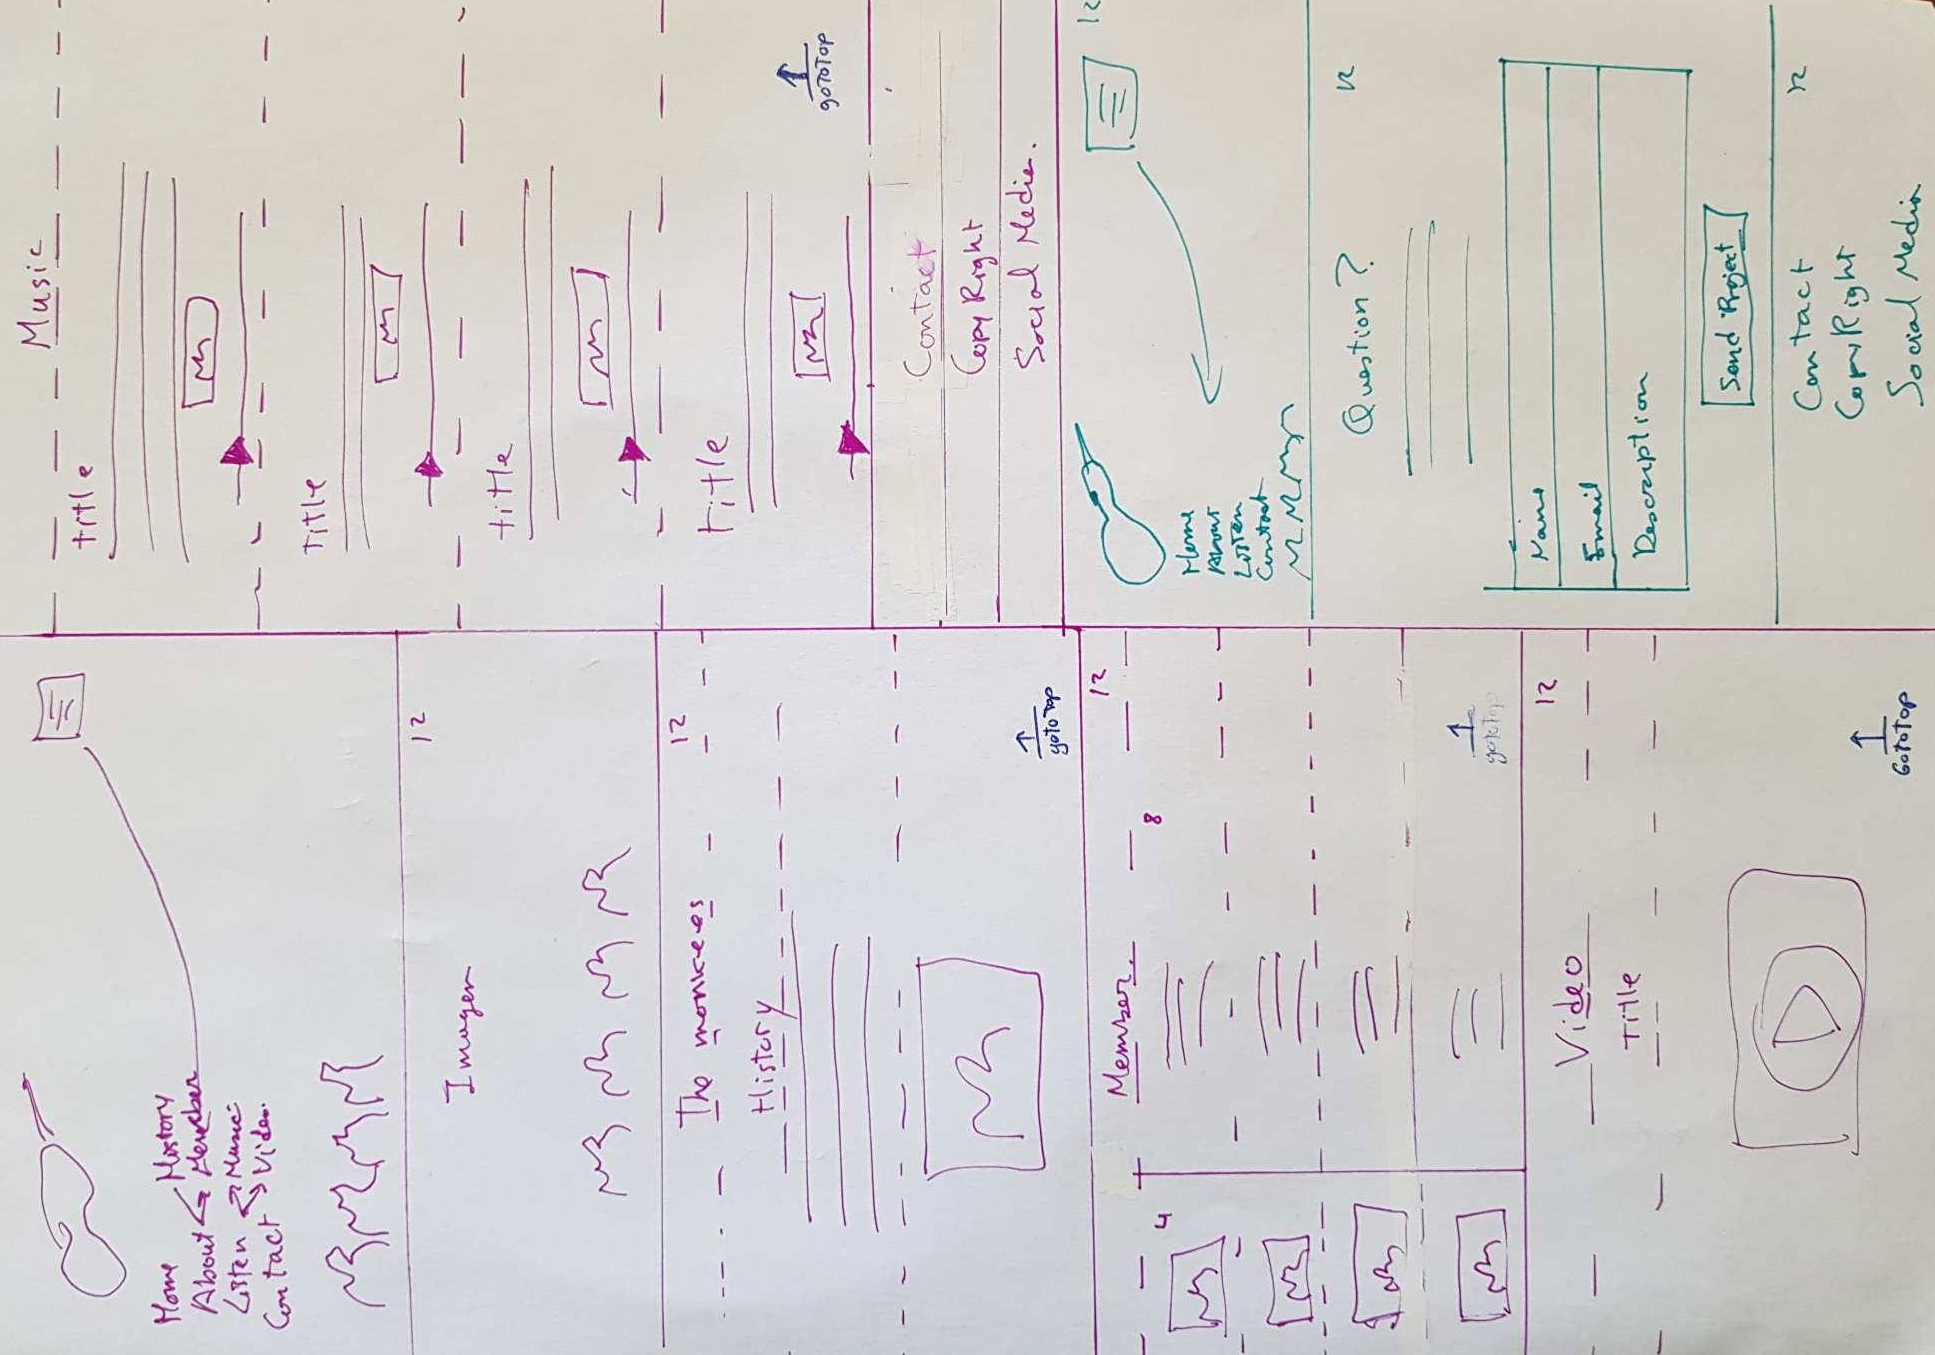 Home
About
History
Member
Listen
Music
Video
Contact
12
Imagen
12
The monkees
History
goto Top
12
Member.
4
8
gototop
12
Video
Title
GoToTop
Music
title
title
title
title
goToTop
Contact
CopyRight
Social Media.
12
Home
About
Listen
Contact
12
Question?
Name
Email
Description
Send Project
12
Contact
CopyRight
Social Media